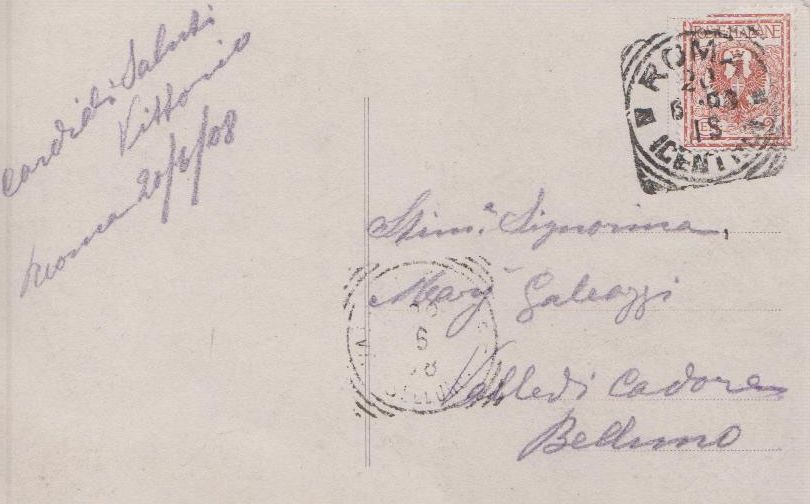 Cordiali Saluti
Vittorio
Roma 20/6/08
ROMA
20
6 08
18
(CENTRO)
POSTE ITALIANE
2
Stim.ª Signorina,
Mary Galeazzi
Valle di Cadore
Belluno
6
08
BELLUNO